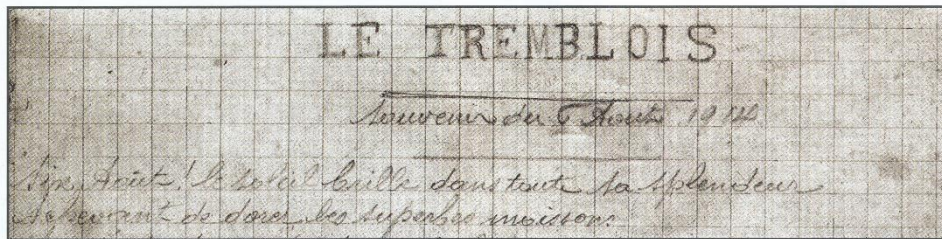 LE TREMBLOIS
Souvenir du 6 Août 1914
Six Août! le soleil brille dans toute sa splendeur
achevant de dorer les superbes moissons.